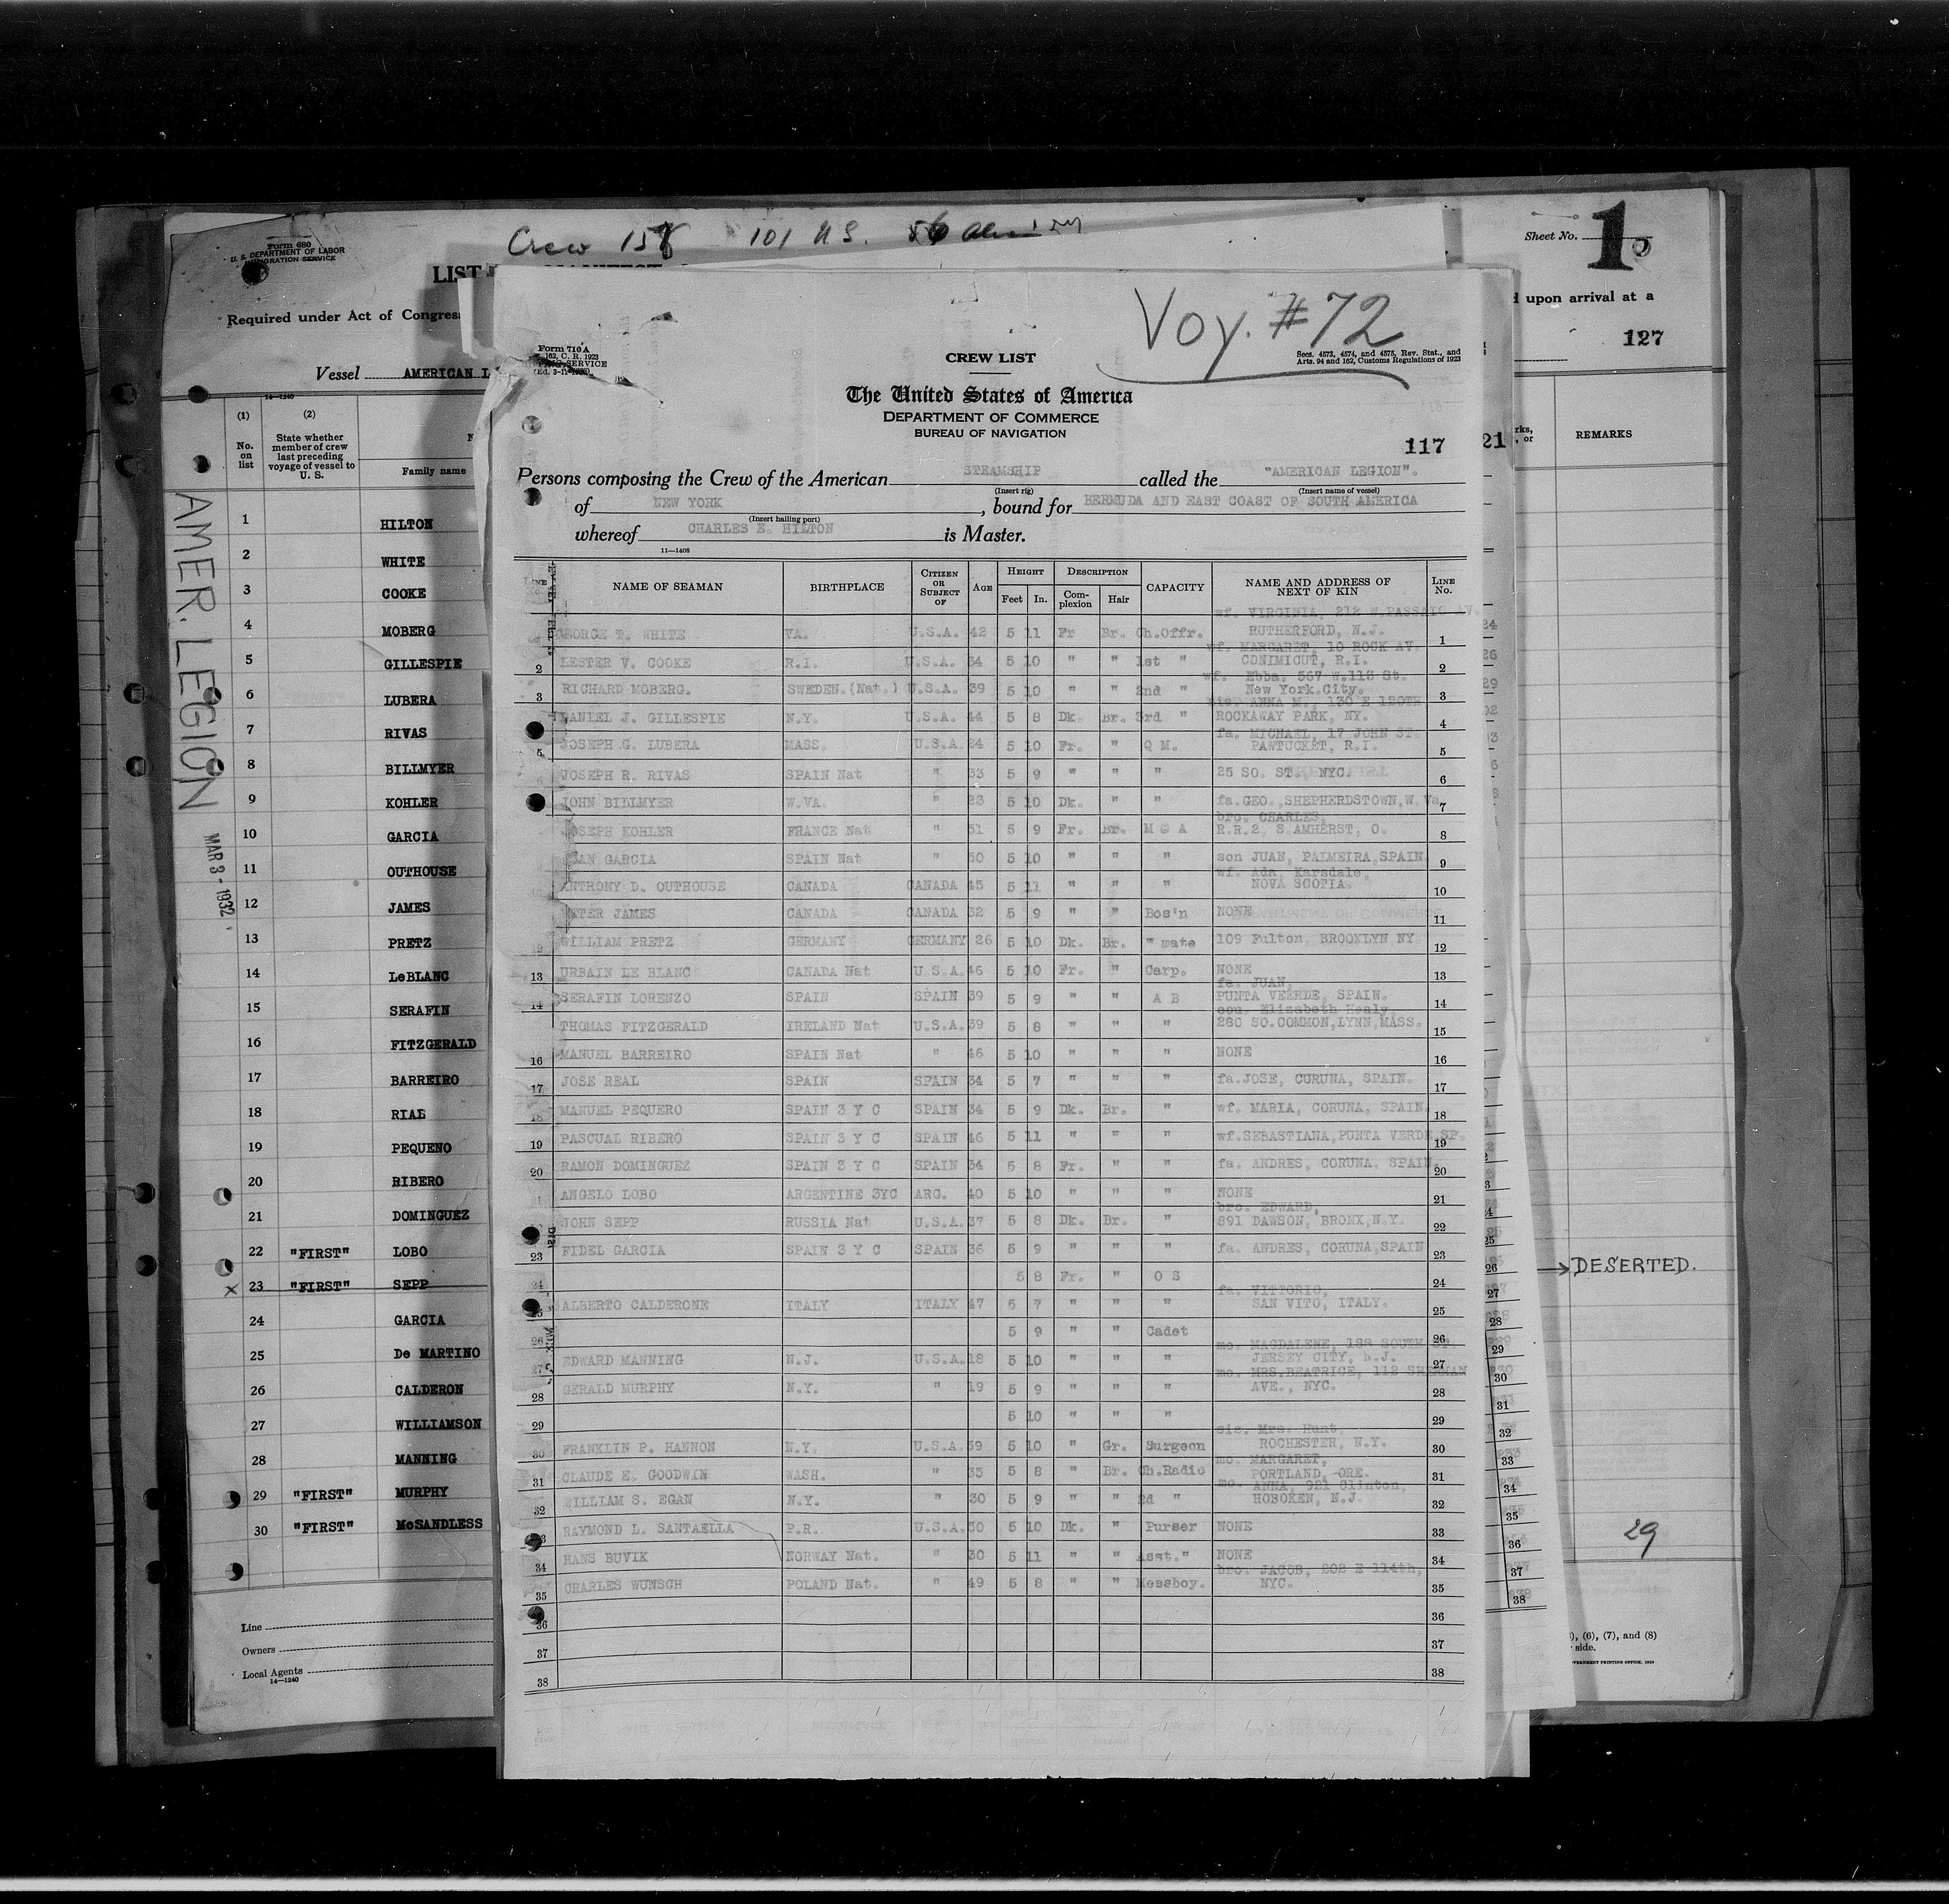 Form 680
U. S. DEPARTMENT OF LABOR
IMMIGRATION SERVICE
Crew 158 101 U.S.
LIST
Required under Act of Congress
Vessel AMERICAN L
14—1240
(1) (2)
No. on list
State whether member of crew last preceding voyage of vessel to U. S.
Family name
1 HILTON
2 WHITE
3 COOKE
4 MOBERG
5 GILLESPIE
6 LUBERA
7 RIVAS
8 BILLMYER
9 KOHLER
10 GARCIA
11 OUTHOUSE
12 JAMES
13 PRETZ
14 LeBLANC
15 SERAFIN
16 FITZGERALD
17 BARREIRO
18 RIAL
19 PEQUENO
20 RIBERO
21 DOMINGUEZ
22 "FIRST" LOBO
x 23 "FIRST" SEPP
24 GARCIA
25 De MARTINO
26 CALDERON
27 WILLIAMSON
28 MANNING
29 "FIRST" MURPHY
30 "FIRST" McSANDLESS
Line
Owners
Local Agents
14—1240
AMER. LEGION
MAR 3 - 1932
Voy. #72
Form 710 A
162, C. R. 1923
SERVICE
CREW LIST
Secs. 4573, 4574, and 4575, Rev. Stat., and
Arts. 94 and 162, Customs Regulations of 1923
The United States of America
DEPARTMENT OF COMMERCE
BUREAU OF NAVIGATION
117
Persons composing the Crew of the American STEAMSHIP called the "AMERICAN LEGION".
(Insert rig) (Insert name of vessel)
of NEW YORK, bound for BERMUDA AND EAST COAST OF SOUTH AMERICA
(Insert hailing port)
whereof CHARLES E. HILTON is Master.
11—1408
LINE NAME OF SEAMAN BIRTHPLACE CITIZEN OR SUBJECT OF AGE HEIGHT Feet In. DESCRIPTION Complexion Hair CAPACITY NAME AND ADDRESS OF NEXT OF KIN LINE No.
wf. VIRGINIA, 212 W.PASSAIC AV.
GEORGE T. WHITE VA. U.S.A. 42 5 11 Fr Br. Ch.Offr. RUTHERFORD, N.J. 1
wf. MARGARET, 10 ROCK AV.
2 LESTER V. COOKE R.I. U.S.A. 34 5 10 " " 1st " CONIMICUT, R.I. 2
wf. Ebba, 567 W.113 St.
3 RICHARD MOBERG. SWEDEN.(Nat.) U.S.A. 39 5 10 " " 2nd " New York.City. 3
sis. ANNA M., 130 E 120TH
DANIEL J. GILLESPIE N.Y. U.S.A. 44 5 8 Dk. Br. 3rd " ROCKAWAY PARK, NY. 4
fa. MICHAEL, 17 JOHN ST.
5 JOSEPH G. LUBERA MASS. U.S.A. 24 5 10 Fr. " Q M. PAWTUCKET, R.I. 5
6 JOSEPH R. RIVAS SPAIN Nat " 33 5 9 " " " 25 SO. ST., NYC. 6
JOHN BILLMYER W.VA. " 23 5 10 Dk. " " fa.GEO.,SHEPHERDSTOWN,W.Va. 7
bro. CHARLES,
JOSEPH KOHLER FRANCE Nat " 51 5 9 Fr. Br. M @ A R.R.2, S.AMHERST, O. 8
JUAN GARCIA SPAIN Nat " 50 5 10 " " " son JUAN, PALMEIRA,SPAIN. 9
wf. Ada, Karsdale,
ANTHONY D. OUTHOUSE CANADA CANADA 45 5 11 " " " NOVA SCOTIA. 10
PETER JAMES CANADA CANADA 32 5 9 " " Bos'n NONE 11
12 WILLIAM PRETZ GERMANY GERMANY 26 5 10 Dk. Br. " mate 109 Fulton, BROOKLYN NY. 12
13 URBAIN LE BLANC CANADA Nat U.S.A. 46 5 10 Fr. " Carp. NONE 13
fa. JUAN,
14 SERAFIN LORENZO SPAIN SPAIN 39 5 9 " " A B PUNTA VEERDE, SPAIN. 14
cou. Elizabeth Healy,
THOMAS FITZGERALD IRELAND Nat U.S.A. 39 5 8 " " " 280 SO.COMMON,LYNN,MASS. 15
16 MANUEL BARREIRO SPAIN Nat " 46 5 10 " " " NONE 16
17 JOSE REAL SPAIN SPAIN 34 5 7 " " " fa.JOSE, CURUNA, SPAIN. 17
18 MANUEL PEQUERO SPAIN 3 Y C SPAIN 34 5 9 Dk. Br. " wf. MARIA, CORUNA, SPAIN. 18
19 PASCUAL RIBERO SPAIN 3 Y C SPAIN 46 5 11 " " " wf.SEBASTIANA,PUNTA VERDE,SP. 19
20 RAMON DOMINGUEZ SPAIN 3 Y C SPAIN 34 5 8 Fr. " " fa. ANDRES, CORUNA, SPAIN. 20
ANGELO LOBO ARGENTINE 3YC ARG. 40 5 10 " " " NONE 21
bro. EDWARD,
JOHN SEPP RUSSIA Nat U.S.A. 37 5 8 Dk. Br. " 891 DAWSON, BRONX,N.Y. 22
23 FIDEL GARCIA SPAIN 3 Y C SPAIN 36 5 9 " " " fa. ANDRES, CORUNA,SPAIN 23
24 5 8 Fr. " O S 24
fa. VITTORIO,
25 ALBERTO CALDERONE ITALY ITALY 47 5 7 " " " SAN VITO, ITALY. 25
26 5 9 " " Cadet 26
mo. MAGDALENE, 188 SOUTH ST.
27 EDWARD MANNING N.J. U.S.A. 18 5 10 " " " JERSEY CITY, N.J. 27
mo. MRS.BEATRICE, 112 SHERMAN
28 GERALD MURPHY N.Y. " 19 5 9 " " " AVE., NYC. 28
29 5 10 " " " 29
sis. Mrs. Hunt,
30 FRANKLIN P. HANNON N.Y. U.S.A. 59 5 10 " Gr. Surgeon ROCHESTER, N.Y. 30
mo. MARGARET,
31 CLAUDE E. GOODWIN WASH. " 35 5 8 " Br. Ch.Radio PORTLAND, ORE. 31
mo. ANNA, 921 Clinton,
32 WILLIAM S. EGAN N.Y. " 30 5 9 " " 2d " HOBOKEN, N.J. 32
33 RAYMOND L. SANTAELLA P.R. U.S.A. 50 5 10 Dk. " Purser NONE 33
34 HANS BUVIK NORWAY Nat. " 30 5 11 " " Asst." NONE 34
bro. JACOB, 202 E 114th,
35 CHARLES WUNSCH POLAND Nat. " 49 5 8 " " Messboy. NYC. 35
36 36
37 37
38 38
Sheet No. 1
d upon arrival at a
127
21
rks, or
REMARKS
26
27
28
29
30
31
32
33
34
35
36
37
38
→DESERTED.
29
), (6), (7), and (8)
side.
GOVERNMENT PRINTING OFFICE